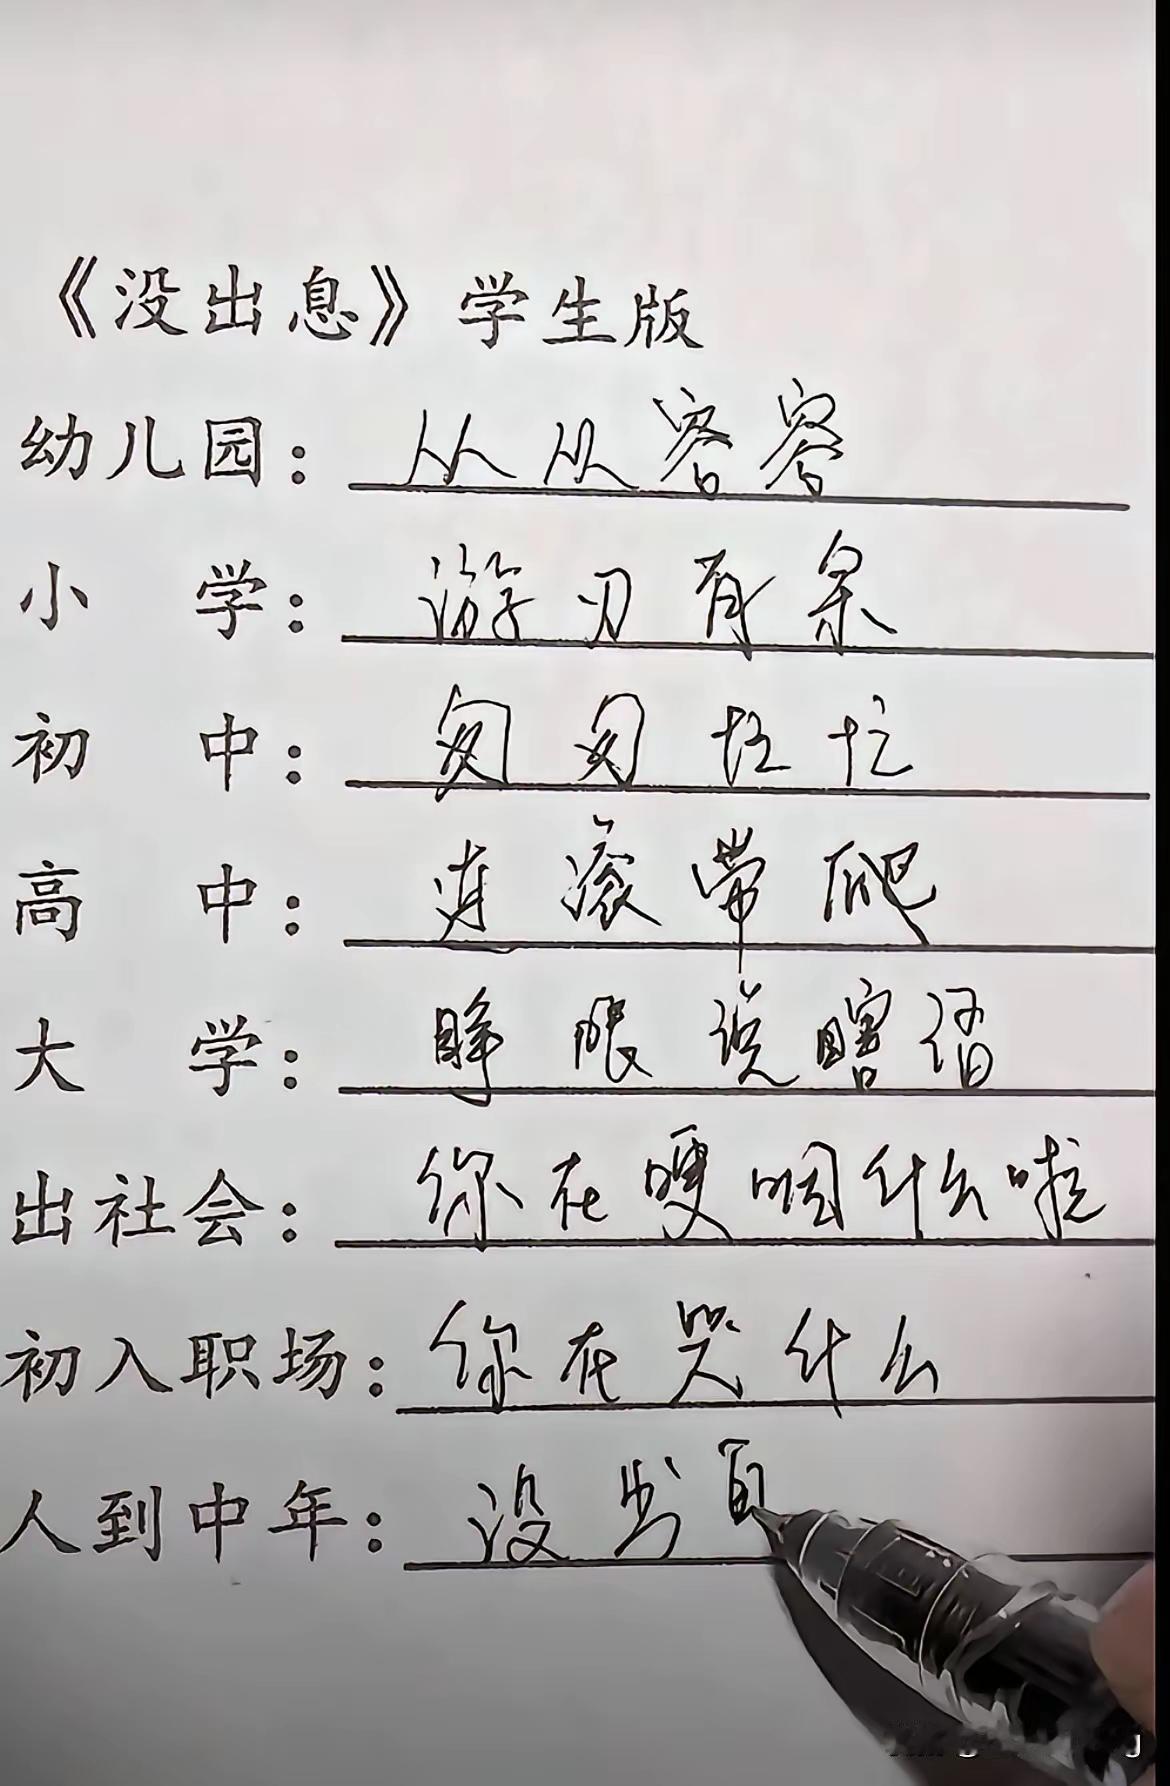 《没出息》学生版
幼儿园：从从容容
小学：游刃有余
初中：匆匆忙忙
高中：连滚带爬
大学：睁眼说瞎话
出社会：你在哽咽什么啦
初入职场：你在哭什么
人到中年：没出